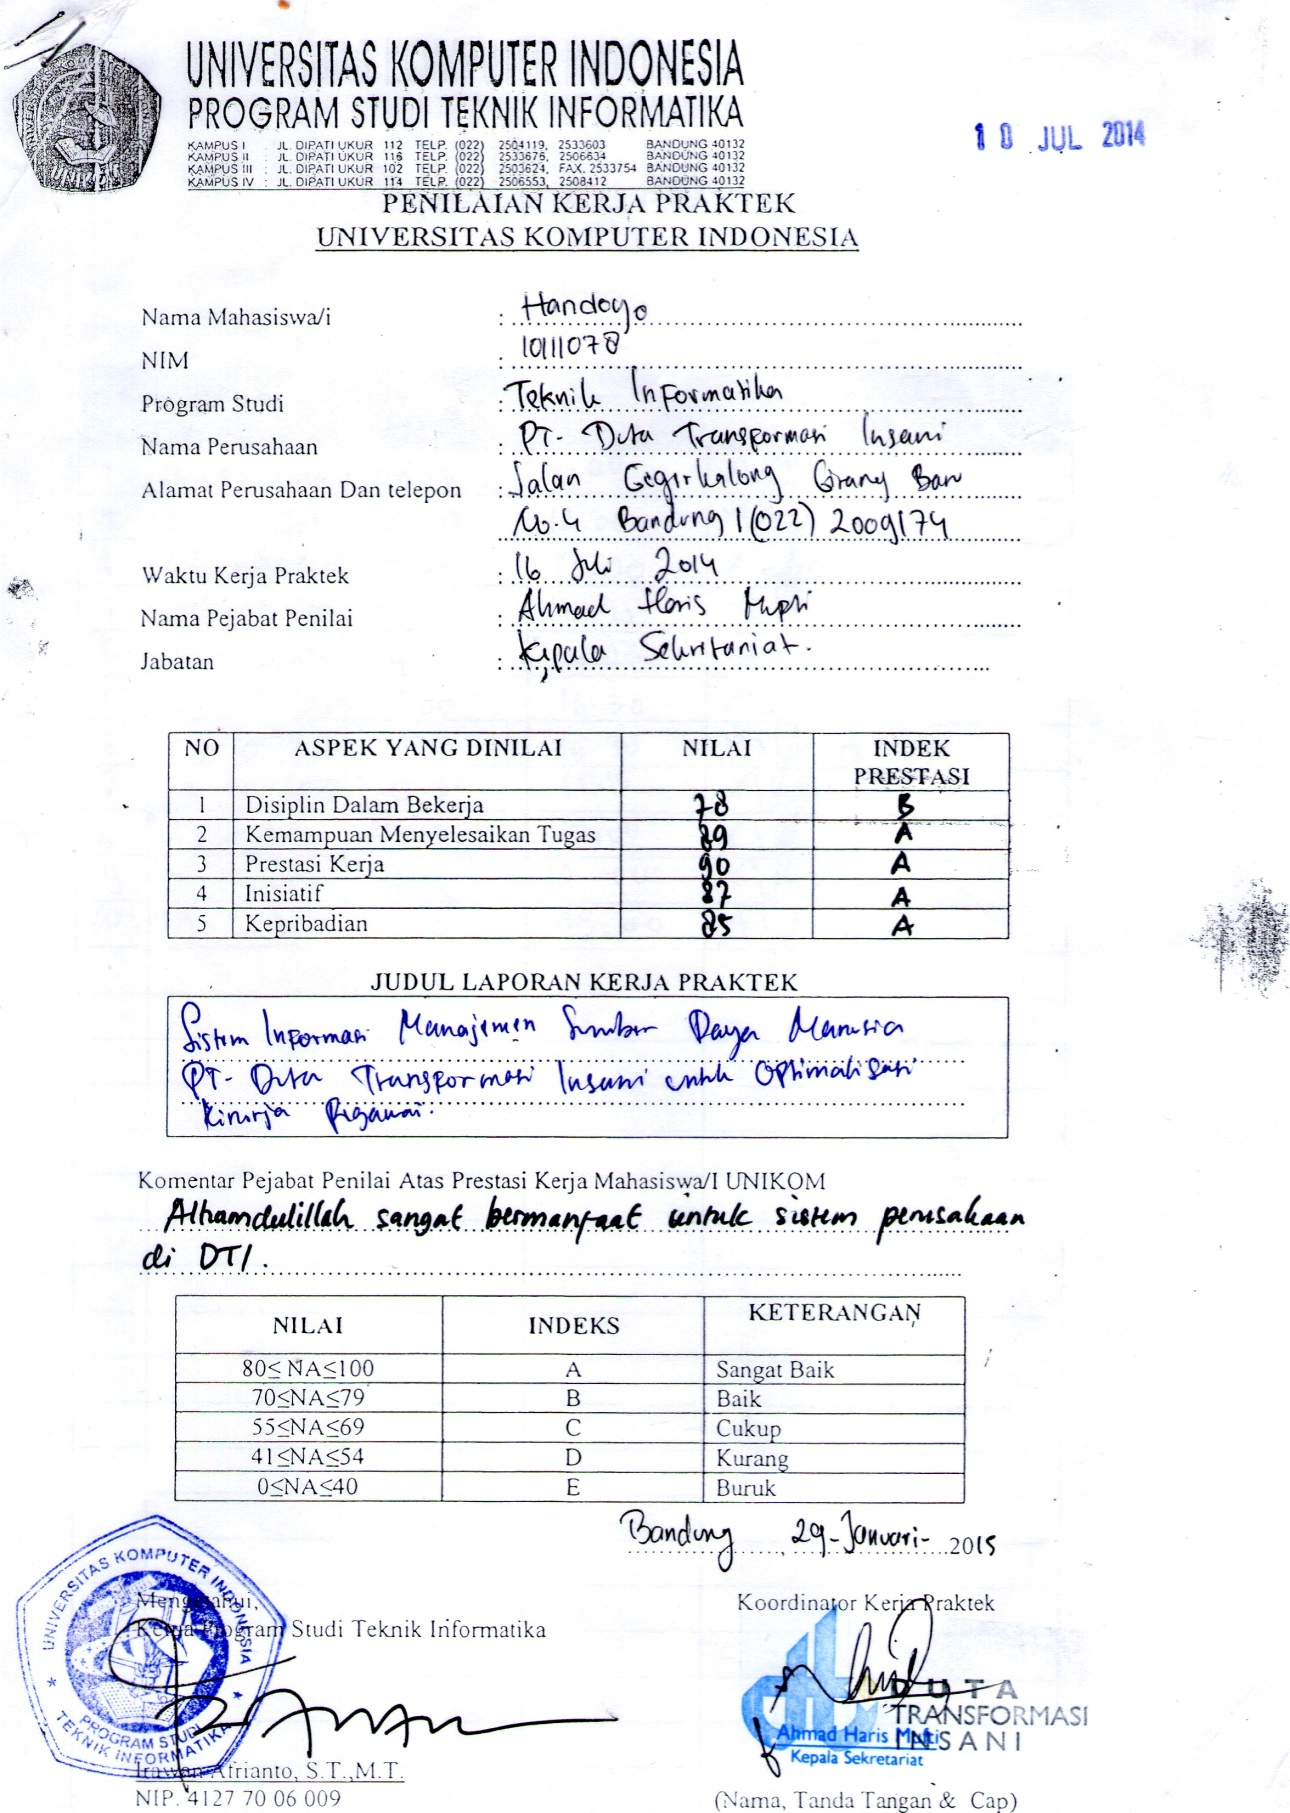 UNIVERSITAS KOMPUTER INDONESIA
PROGRAM STUDI TEKNIK INFORMATIKA
KAMPUS I : JL. DIPATI UKUR 112 TELP. (022) 2504119, 2533603 BANDUNG 40132
KAMPUS II : JL. DIPATI UKUR 116 TELP. (022) 2533676, 2506634 BANDUNG 40132
KAMPUS III : JL. DIPATI UKUR 102 TELP. (022) 2503624, FAX. 2533754 BANDUNG 40132
KAMPUS IV : JL. DIPATI UKUR 114 TELP. (022) 2506553, 2508412 BANDUNG 40132
UNIKOM
10 JUL 2014
PENILAIAN KERJA PRAKTEK
UNIVERSITAS KOMPUTER INDONESIA
Nama Mahasiswa/i : Handoyo
NIM : 10111078
Program Studi : Teknik Informatika
Nama Perusahaan : PT. Duta Transformasi Insani
Alamat Perusahaan Dan telepon : Jalan Gegerkalong Girang Baru
No.4 Bandung / (022) 2009174
Waktu Kerja Praktek : 16 Juli 2014
Nama Pejabat Penilai : Ahmad Haris Mufti
Jabatan : Kepala Sekretariat.
NO ASPEK YANG DINILAI NILAI INDEK PRESTASI
1 Disiplin Dalam Bekerja 78 B
2 Kemampuan Menyelesaikan Tugas 89 A
3 Prestasi Kerja 90 A
4 Inisiatif 87 A
5 Kepribadian 85 A
JUDUL LAPORAN KERJA PRAKTEK
Sistem Informasi Manajemen Sumber Daya Manusia
PT. Duta Transformasi Insani untuk Optimalisasi
Kinerja Pegawai.
Komentar Pejabat Penilai Atas Prestasi Kerja Mahasiswa/I UNIKOM
Alhamdulillah sangat bermanfaat untuk sistem perusahaan
di DTI.
NILAI INDEKS KETERANGAN
80≤ NA≤100 A Sangat Baik
70≤NA≤79 B Baik
55≤NA≤69 C Cukup
41≤NA≤54 D Kurang
0≤NA≤40 E Buruk
Bandung, 29-Januari-2015
Mengetahui,
Ketua Program Studi Teknik Informatika
Koordinator Kerja Praktek
UNIVERSITAS KOMPUTER INDONESIA
PROGRAM STUDI
TEKNIK INFORMATIKA
DUTA
TRANSFORMASI
INSANI
Ahmad Haris Mufti
Kepala Sekretariat
Irawan Afrianto, S.T.,M.T.
NIP. 4127 70 06 009
(Nama, Tanda Tangan & Cap)